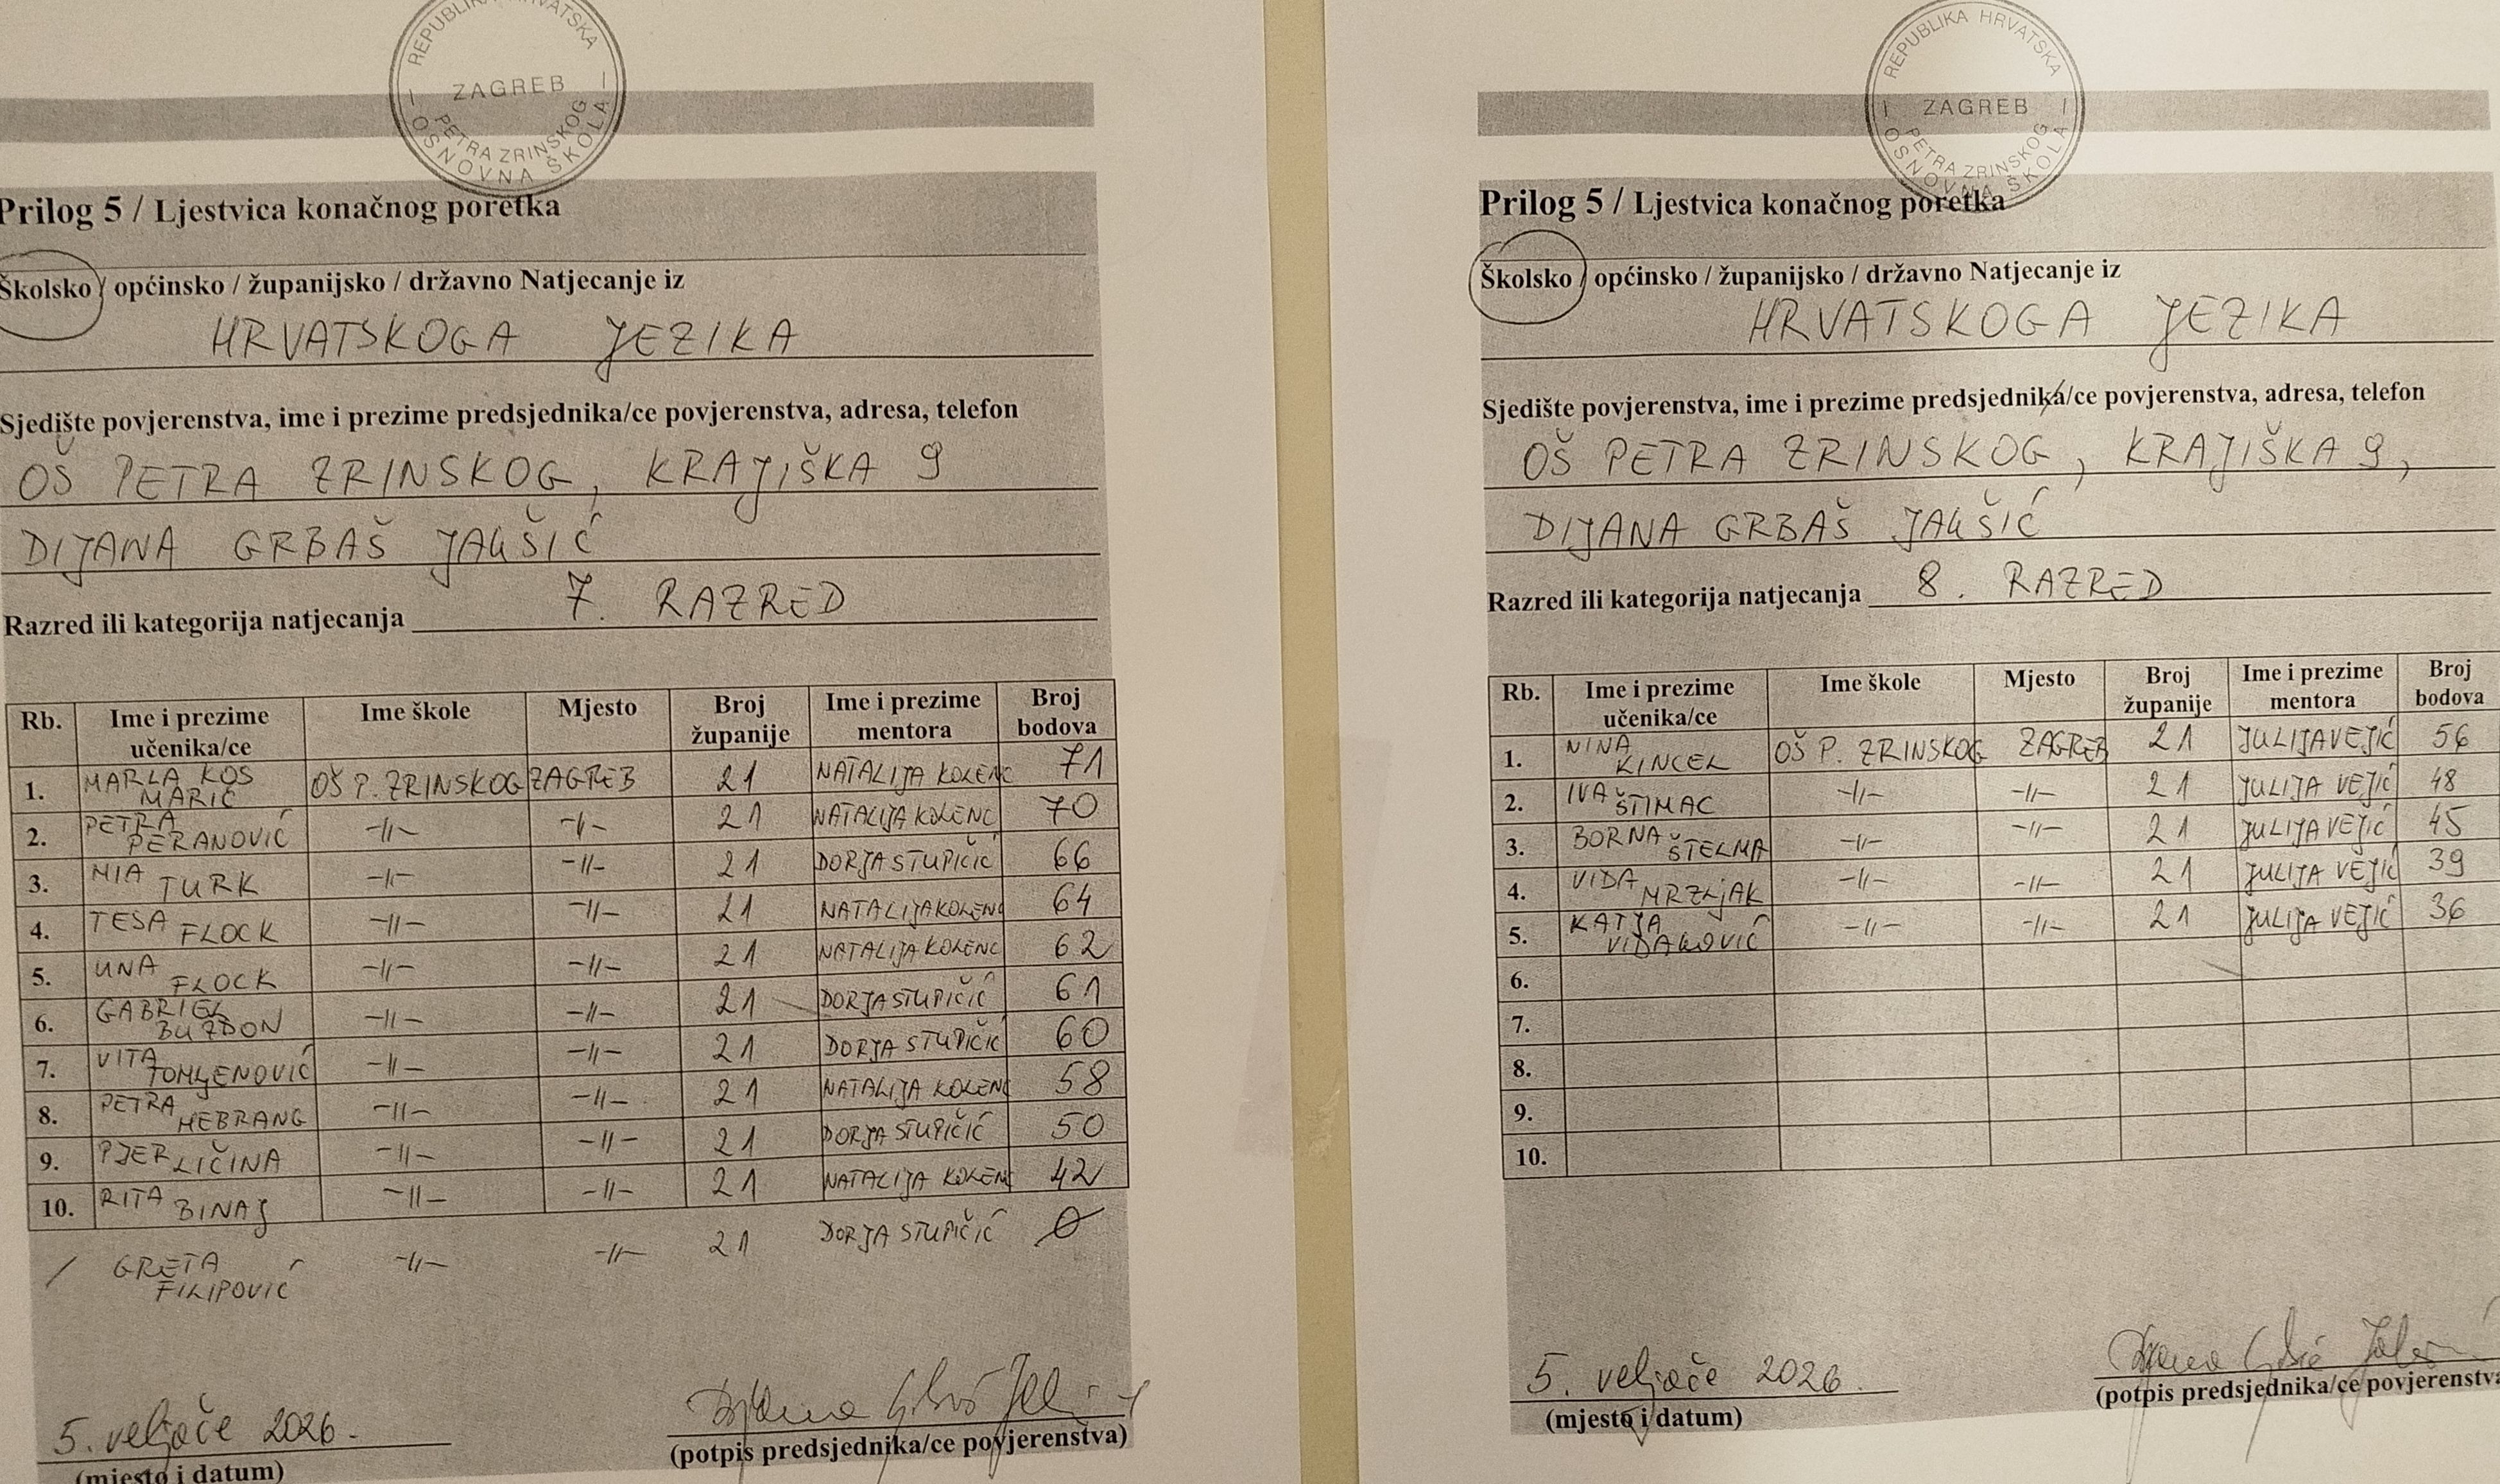 REPUBLIKA HRVATSKA
ZAGREB
PETRA ZRINSKOG
OSNOVNA ŠKOLA
Prilog 5 / Ljestvica konačnog poretka
Školsko / općinsko / županijsko / državno Natjecanje iz
HRVATSKOGA JEZIKA
Sjedište povjerenstva, ime i prezime predsjednika/ce povjerenstva, adresa, telefon
OŠ PETRA ZRINSKOG, KRAJIŠKA 9
DIJANA GRBAŠ JAKŠIĆ
Razred ili kategorija natjecanja 7. RAZRED
Rb. Ime i prezime učenika/ce Ime škole Mjesto Broj županije Ime i prezime mentora Broj bodova
1. MARLA KOS MARIĆ OŠ P. ZRINSKOG ZAGREB 21 NATALIJA KOLENC 71
2. PETRA PERANOVIĆ -||- -||- 21 NATALIJA KOLENC 70
3. MIA TURK -||- -||- 21 DORJA STUPIČIĆ 66
4. TESA FLOCK -||- -||- 21 NATALIJA KOLENC 64
5. UNA FLOCK -||- -||- 21 NATALIJA KOLENC 62
6. GABRIEL BUZDON -||- -||- 21 DORJA STUPIČIĆ 61
7. VITA TOMLJENOVIĆ -||- -||- 21 DORJA STUPIČIĆ 60
8. PETRA HEBRANG -||- -||- 21 NATALIJA KOLENC 58
9. PJER LIČINA -||- -||- 21 DORJA STUPIČIĆ 50
10. RITA BINAJ -||- -||- 21 NATALIJA KOLENC 42
/ GRETA FILIPOVIĆ -||- -||- 21 DORJA STUPIČIĆ 0
5. veljače 2026.
(mjesto i datum)
(potpis predsjednika/ce povjerenstva)
REPUBLIKA HRVATSKA
ZAGREB
PETRA ZRINSKOG
OSNOVNA ŠKOLA
Prilog 5 / Ljestvica konačnog poretka
Školsko / općinsko / županijsko / državno Natjecanje iz
HRVATSKOGA JEZIKA
Sjedište povjerenstva, ime i prezime predsjednika/ce povjerenstva, adresa, telefon
OŠ PETRA ZRINSKOG, KRAJIŠKA 9,
DIJANA GRBAŠ JAKŠIĆ
Razred ili kategorija natjecanja 8. RAZRED
Rb. Ime i prezime učenika/ce Ime škole Mjesto Broj županije Ime i prezime mentora Broj bodova
1. NINA KINCEL OŠ P. ZRINSKOG ZAGREB 21 JULIJA VEJIĆ 56
2. IVA ŠTIMAC -||- -||- 21 JULIJA VEJIĆ 48
3. BORNA ŠTELMA -||- -||- 21 JULIJA VEJIĆ 45
4. VIDA MRZLJAK -||- -||- 21 JULIJA VEJIĆ 39
5. KATJA VIDAKOVIĆ -||- -||- 21 JULIJA VEJIĆ 36
6.
7.
8.
9.
10.
5. veljače 2026.
(mjesto i datum)
(potpis predsjednika/ce povjerenstva